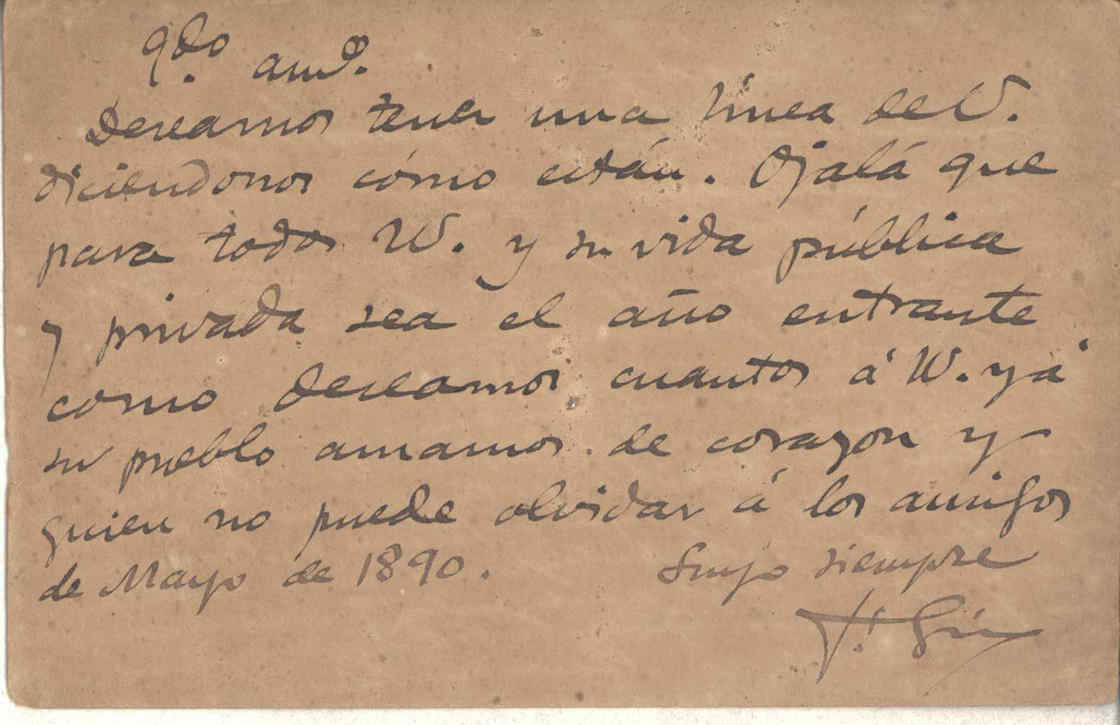 qdo. amo.
Deseamos tener una línea de V.
diciendonos cómo están. Ojalá que
para todos VV. y su vida pública
y privada sea el año entrante
como deseamos cuantos á VV. y á
su pueblo amamos de corazon y
quien no puede olvidar á los amigos
de Mayo de 1890. Suyo siempre
F. Giner